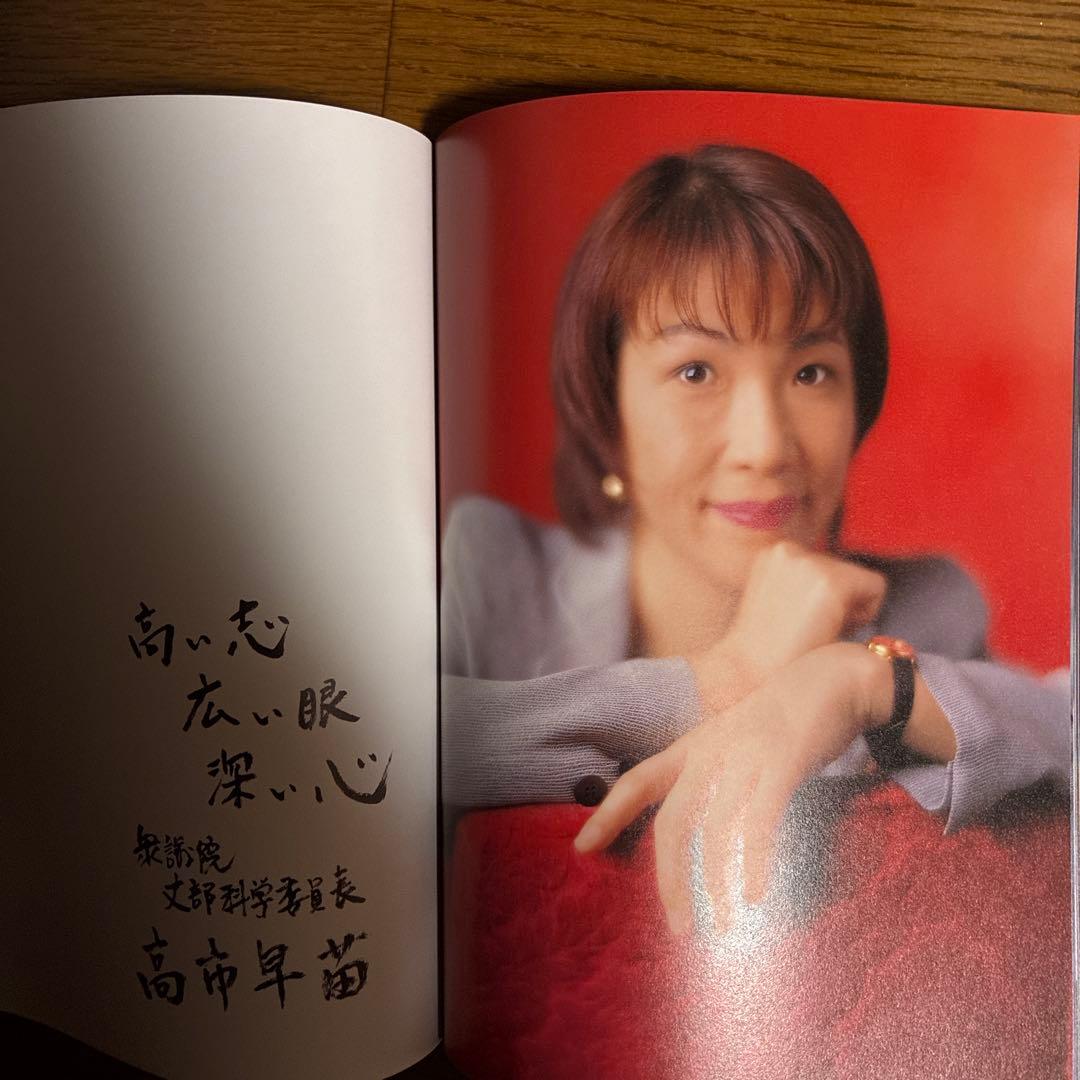 高い志
広い眼
深い心
衆議院
文部科学委員長
高市早苗